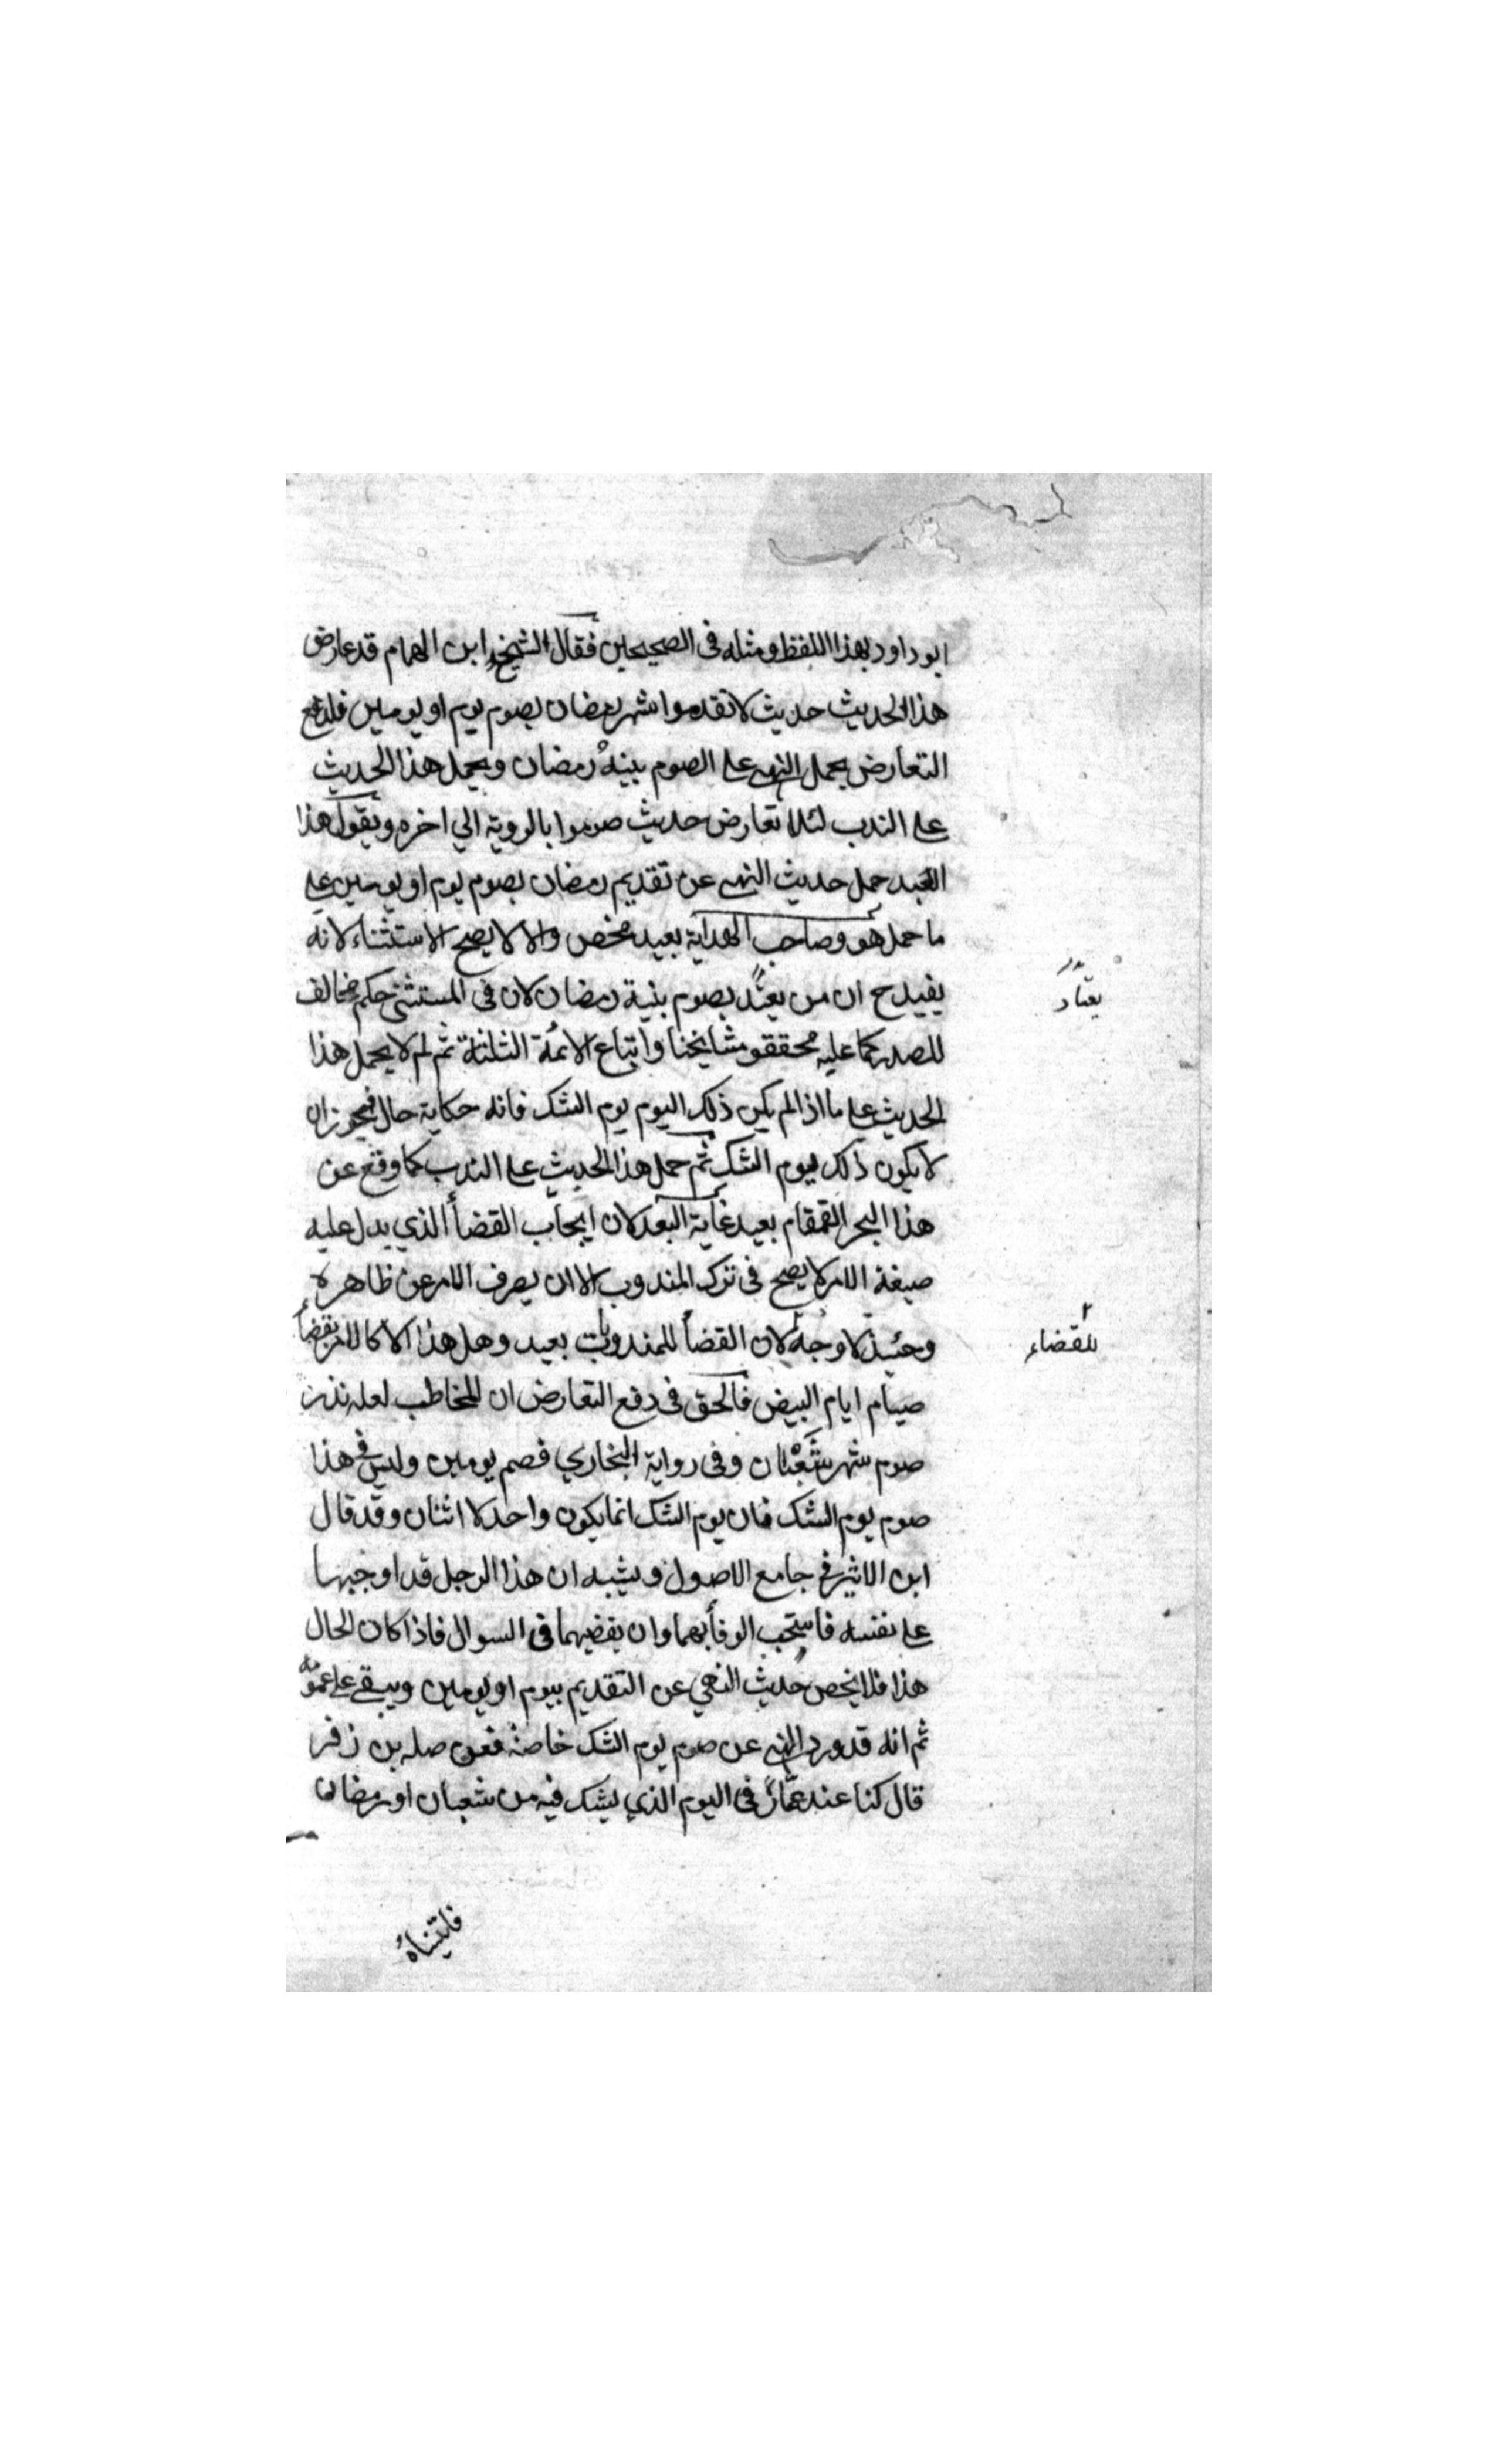 ابو داود بهذا اللفظ ومثله فى الصحيحين فقال الشيخ ابن الهمام قد عارض
هذا الحديث حديث لا تقدموا شهر رمضان بصوم يوم او يومين فلدفع
التعارض يحمل النهى على الصوم بنية رمضان ويحمل هذا الحديث
على الندب لئلا تعارض حديث صوموا بالروية الي اخره ويقول هذا
العبد حمل حديث النهى عن تقديم رمضان بصوم يوم او يومين على
ما حمل هو وصاحب الهداية بعيد محض والا لا يصح الاستثناء لانه
يفيد ح ان من يعتد بصوم بنية رمضان لان فى المستثنى حكم مخالف
يعتاد
للصدر كما عليه محققو مشايخنا واتباع الائمة الثلثة ثم لم لا يحمل هذا
الحديث على ما اذا لم يكن ذلك اليوم يوم الشك فانه حكاية حال فيجوز ان
لا يكون ذلك ليوم الشك ثم حمل هذا الحديث على الندب كما وقع عن
هذا البحر القمقام بعيد غاية البعد لان ايجاب القضأ الذي يدل عليه
صيغة الامر لا يصح فى ترك المندوب الا ان يصرف الامر عن ظاهره
وحينئذ لا وجه لان القضأ للمندوبات بعيد وهل هذا الا كالامر بقضأ
للقضاء
صيام ايام البيض فالحق فى دفع التعارض ان المخاطب لعله نذر
صوم شهر شعبان وفى رواية البخاري فصم يومين وليس فى هذا
صوم يوم الشك فان يوم الشك انما يكون واحد لا اثنان وقد قال
ابن الاثير فى جامع الاصول ويشبه ان هذا الرجل قد اوجبها
على نفسه فاستحب الوفأ بهما وان يقضيهما فى السوال فاذا كان الحال
هذا فلا يخص حديث النهي عن التقديم بيوم او يومين ويبقى على عمومه
ثم انه قد ورد النهى عن صوم يوم الشك خاصة فعن صله بن زفر
قال كنا عند عمار فى اليوم الذي يشك فيه من شعبان او رمضان
فاتيناه